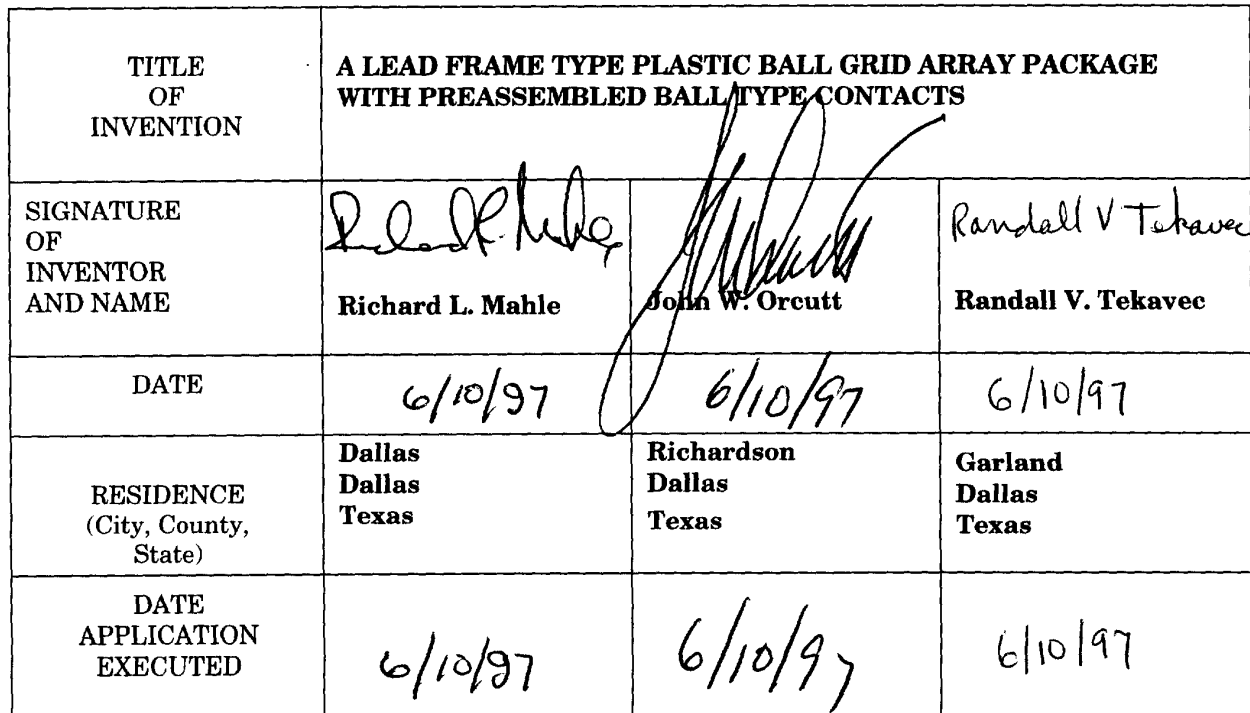 TITLE
OF
INVENTION
A LEAD FRAME TYPE PLASTIC BALL GRID ARRAY PACKAGE
WITH PREASSEMBLED BALL TYPE CONTACTS
SIGNATURE
OF
INVENTOR
AND NAME
Richard L. Mahle
Richard L. Mahle
John W. Orcutt
Randall V Tekavec
Randall V. Tekavec
DATE
6/10/97
6/10/97
6/10/97
RESIDENCE
(City, County,
State)
Dallas
Dallas
Texas
Richardson
Dallas
Texas
Garland
Dallas
Texas
DATE
APPLICATION
EXECUTED
6/10/97
6/10/97
6/10/97